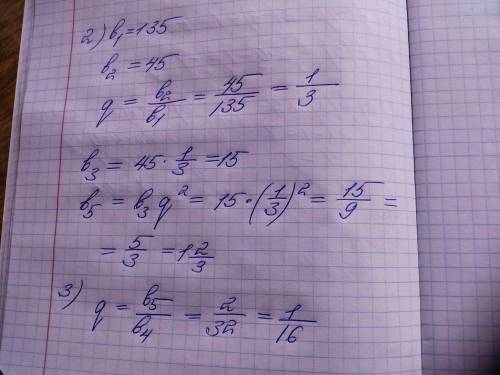 2) b₁ = 135
b₂ = 45
q = b₂/b₁ = 45/135 = 1/3
b₃ = 45 · 1/3 = 15
b₅ = b₃ q² = 15 · (1/3)² = 15/9 =
= 5/3 = 1 2/3
3) q = b₅/b₄ = 2/32 = 1/16